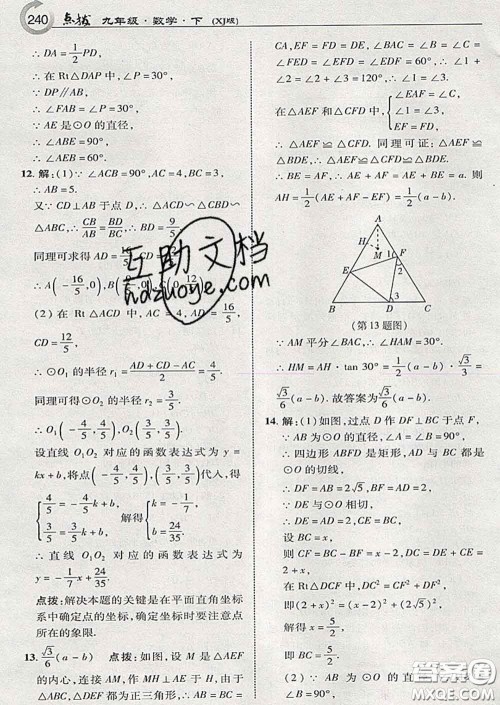 240 点拨 九年级·数学·下 (XJ版)
∴ DA = 1/2 PD.
∴ 在 Rt△DAP 中,∠P=30°,
∵ DP∥AB,
∴ ∠FAB=∠P=30°,
∵ AE 是⊙O 的直径,
∴ ∠ABE=90°,
∴ ∠AEB=60°.
12. 解:(1) ∵ ∠ACB=90°,AC=4,BC=3,
∴ AB=5.
又∵ CD⊥AB 于点 D,∴ △ACD∽△CBD∽
△ABC,∴ CB/AB = BD/BC ∴ BD= 9/5
同理可求得 AD= 16/5
∴ A(-16/5,0),B(9/5,0)
(2) 在 Rt △ADC 中,AC=4,AD= 16/5
CD= 12/5,
∴ ⊙O₁ 的半径 r₁ = (AD+CD-AC)/2 = 4/5.
同理可得⊙O₂ 的半径 r₂ = 3/5.
∴ O₁(-4/5,4/5),O₂(3/5,3/5).
设直线 O₁O₂ 对应的函数表达式为 y=
kx+b,将点(-4/5,4/5)(3/5,3/5)代人,得
{4/5=-4/5k+b, 3/5=3/5k+b, 解得 {k=-1/7, b=24/35.
∴ 直线 O₁O₂ 对应的函数表达式为
y=-1/7x+24/35.
点拨:解决本题的关键是在平面直角坐标
系中确定点的坐标,确定坐标时要注意点
所在的象限.
13. √3/6(a-b) 点拨:如图,设 M 是△AEF
的内心,连接 AM,过 M 作 MH⊥AE 于 H,由
于△ABC,△DEF 都为正三角形,∴ AB=BC=
CA,EF=FD=DE,∠BAC=∠B=∠C=
∠FED=∠EFD=∠EDF=60°,∴ ∠1+
∠2=∠2+∠3=120°,∴ ∠1=∠3.
在△AEF 和△CFD 中,{∠EAF=∠C, ∠1=∠3, EF=FD,
∴ △AEF≌△CFD. 同理可证:
∴ BE=AF,∴ AE+AF=AE+BE=a. 则
AH= 1/2(AE+AF-EF)= 1/2(a-b).
A
H
M
1
F
E
2
3
B
D
C
(第13题图)
∵ AM 平分∠BAC,∴ ∠HAM=30°.
∴ HM=AH·tan 30°= 1/2(a-b)·√3/3=
√3/6(a-b). 故答案为√3/6(a-b).
14. 解:(1)如图,过点 D 作 DF⊥BC 于点 F,
∵ AB 为⊙O 的直径,
∴ 四边形 ABFD 是矩形,AD 与 BC
⊙O 的切线,
∴ DF=AB=2√5,BF=AD=2,
∵ DE 与⊙O 相切,
∴ DE=AD=2,CE=BC,设 BC=x,
则 CF=BC-BF=x-2,DC=DE+CE=
2+x.
在 Rt△DCF 中,DC²=CF²+DF²,
即(2+x)²=(x-2)²+(2√5)²,
解得 x= 5/2,
即 BC= 5/2.
(2) ∵ AB 为⊙O 的直径,
∠B=90°,
互助文档
hdzuoye.com
答案圈
MXQE.COM